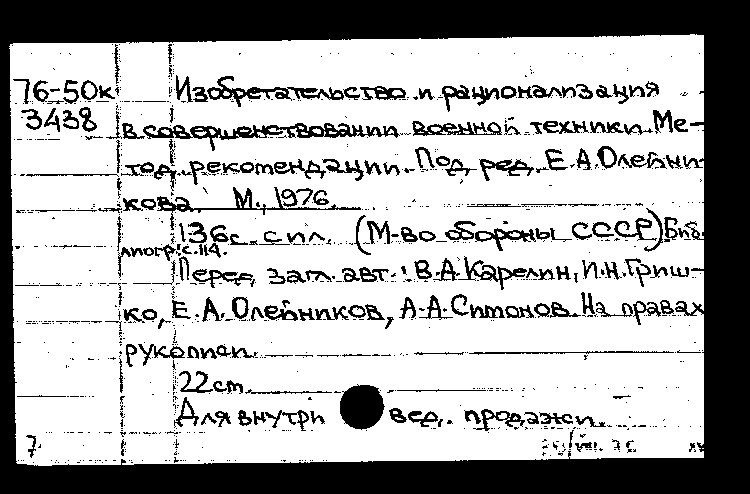 76-50к Изобретательство и рационализация
3438 в совершенствовании военной техники. Ме-
тод. рекомендации. Под ред. Е.А.Олейни-
кова. М., 1976.
136с. с ил. (М-во обороны СССР) Биб-
лиогр. с. 114.
Перед загл. авт.: В.А.Карелин, И.Н.Гриш-
ко, Е.А.Олейников, А.А.Симонов. На правах
рукописи.
22 см.
Для внутри вед. продажи.
7